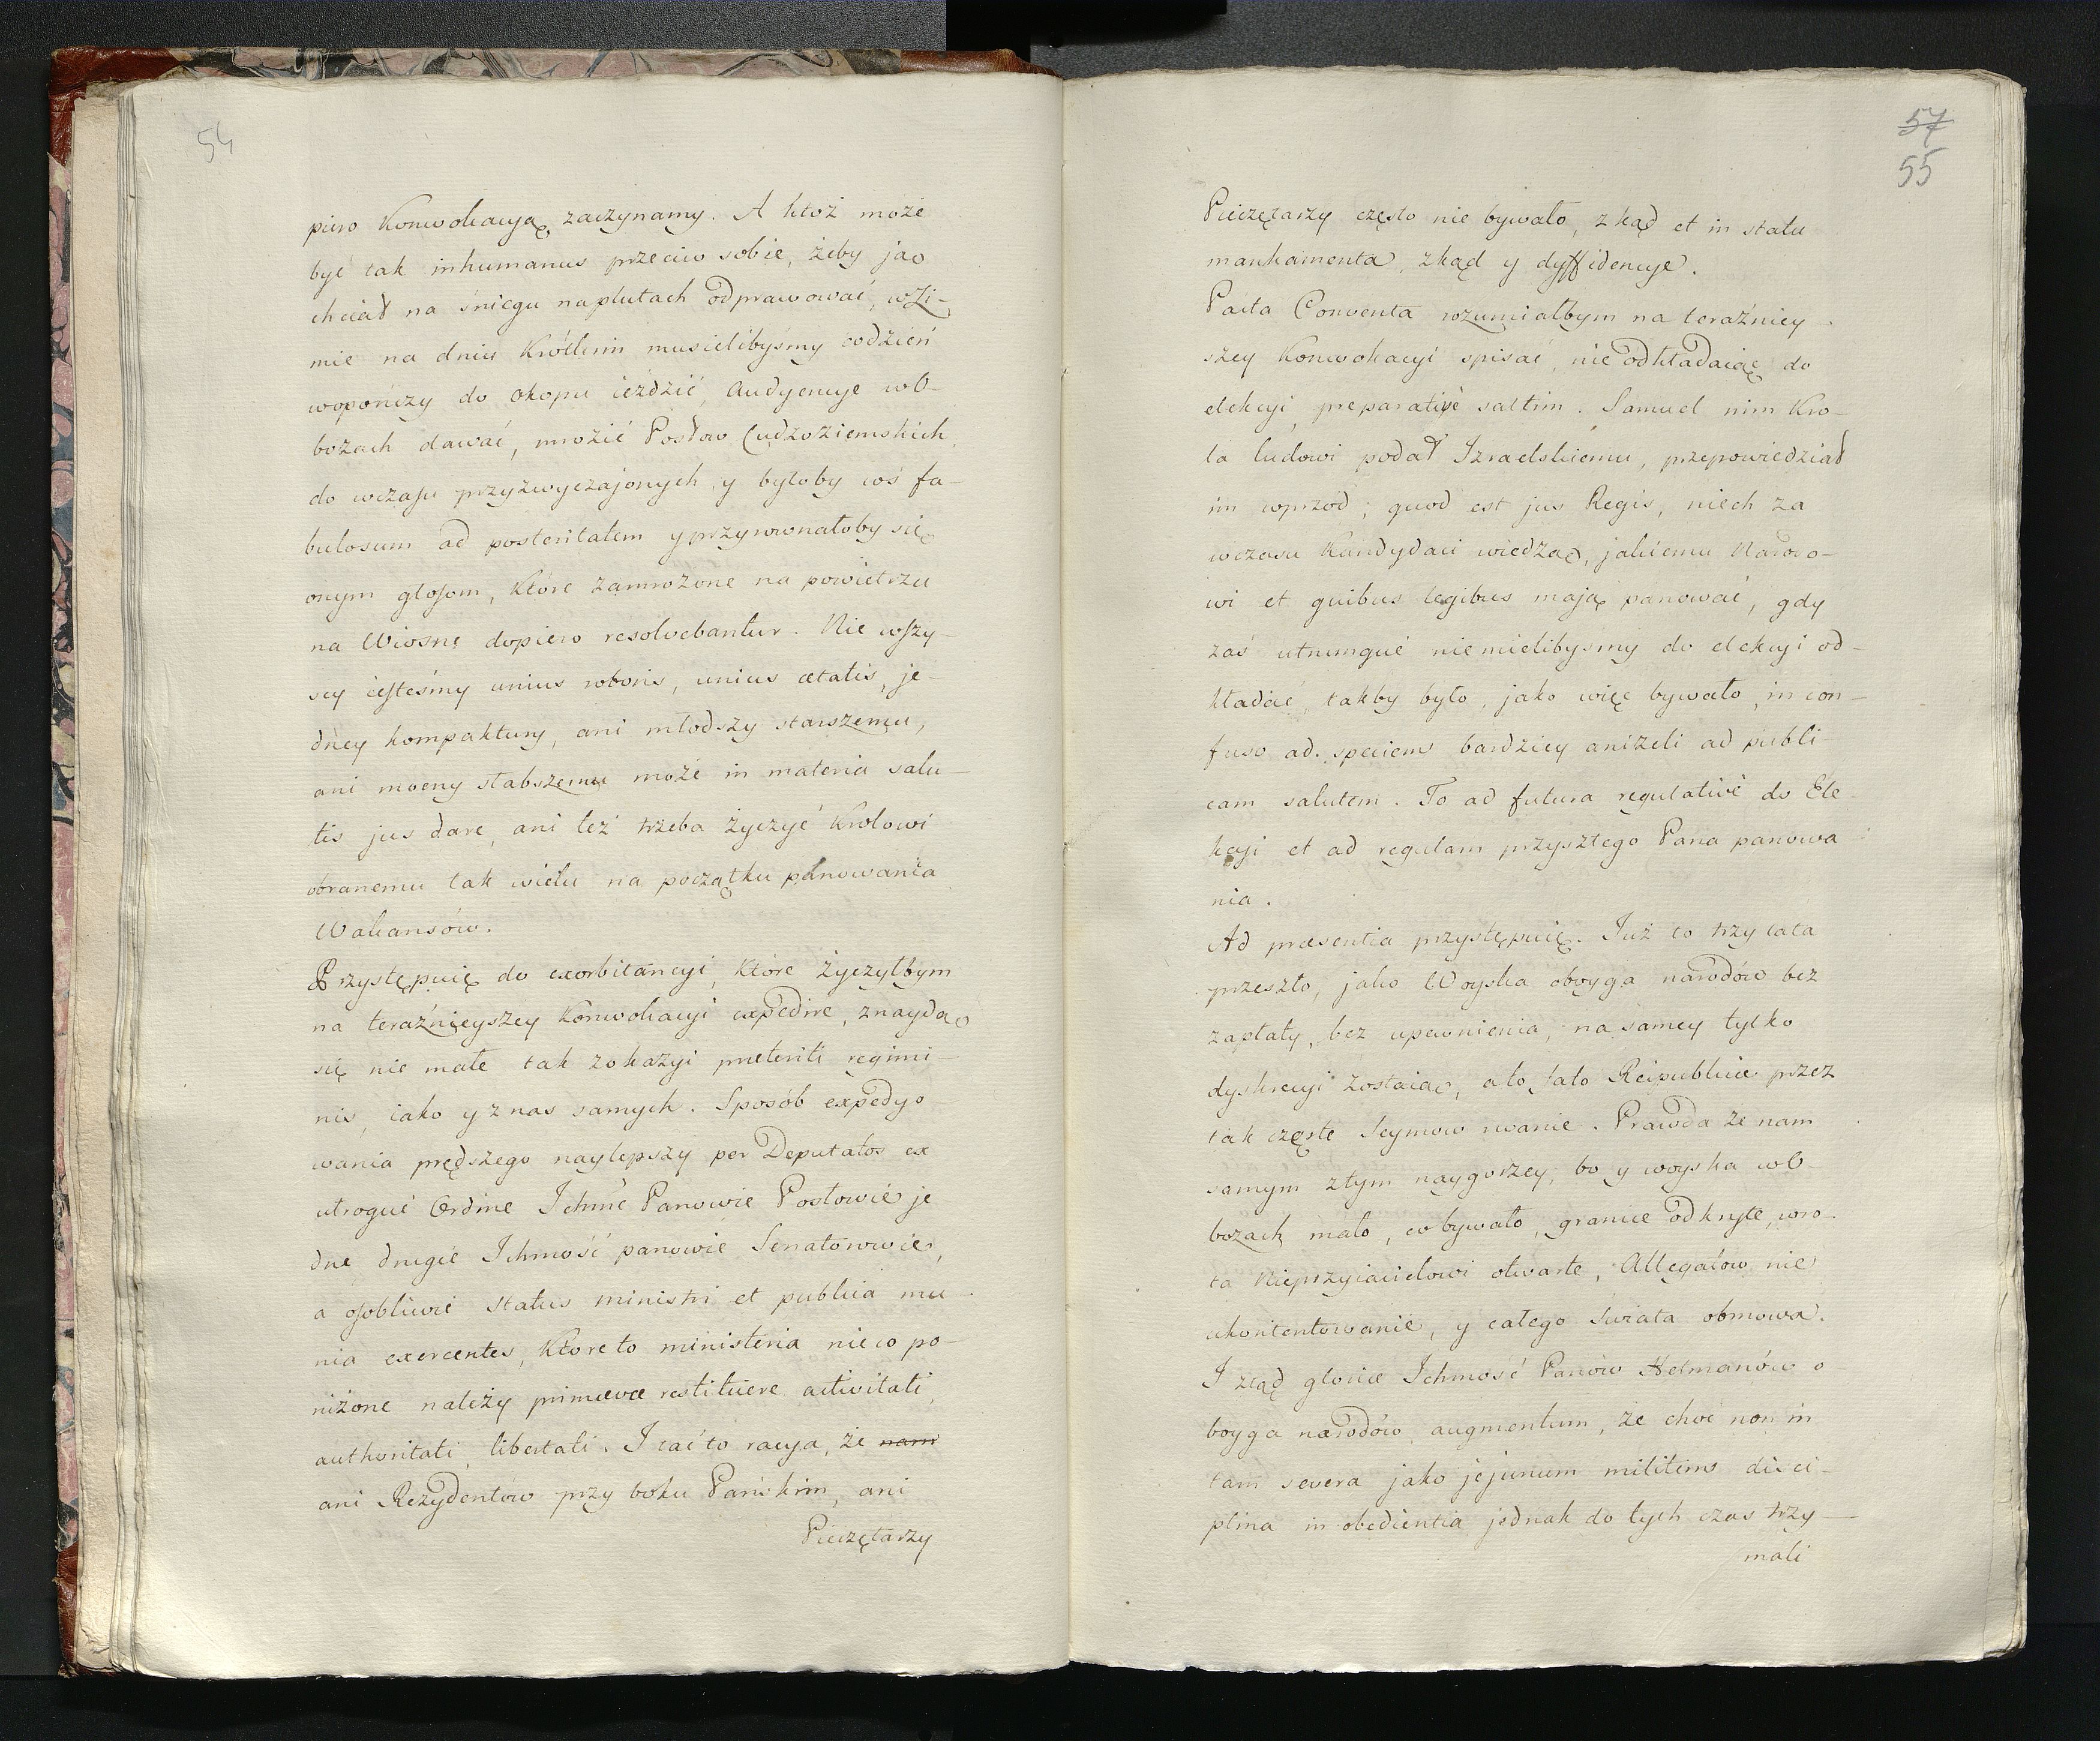 54
piero Konwokacyą zaczynamy. A ktoż może
być tak inhumanus przeciw sobie, żeby ją
chciał na śniegu na plutach odprawować, w Zi-
mie na dniu krótkim musielibyśmy codzień
w opończy do okopu ieździć, Audyencye w O-
bozach dawać, mrozić Posłow Cudzoziemskich,
do wczasu przyzwyczajonych, y byłoby coś fa-
bulosum ad posteritatem y przyrownałoby się
onym głosom, które zamrożone na powietrzu
na Wiosnę dopiero resolvebantur. Nie wszy-
scy iesteśmy unius roboris, unius ætatis, je-
dney kompaktury, ani młodszy starszemu,
ani mocny słabszemu może in materia salu-
tis jus dare, ani też trzeba życzyć Krolowi
obranemu tak wielu na początku panowania
Wakansów.
Przystępuię do exorbitancyi, które życzyłbym
na teraźnieyszey Konwokacyi expedire, znaydą
się nie małe tak z okazyi præteriti regimi-
nis, iako y z nas samych. Sposób expedyo-
wania prędszego naylepszy per Deputatos ex
utroque Ordine Ichmć Panowie Posłowie je
dne drugie Ichmość panowie Senatorowie,
a osobliwie status ministri et publica mu-
nia exercentes, Które to ministeria nieco po-
niżone należy primævæ restituere activitati,
authoritati, libertati. I tać to racya, że ~~nam~~
ani Rezydentów przy boku Pańskim, ani
Pieczętarzy
57
55
Pieczętarzy często nie bywało, zkąd et in statu
mankamenta, zkąd y dyffidencye.
Pacta Conventa rozumiałbym na teraźniey-
szey Konwokacyi spisać, nie odkładaiąc do
elekcyi, preparativè saltim. Samuel nim Kro-
la ludowi podał Izraelskiemu, przepowiedział
im wprzód; quod est jus Regis, niech za
wczasu Kandydaci wiedzą, jakiemu Narodo-
wi et quibus legibus mają panować, gdy
zaś utrumque niemielibysmy do elekcyi od-
kładać, takby było, jako więc bywało, in con-
fuso ad speciem bardziey aniżeli ad publi-
cam salutem. To ad futura regulativè do Ele-
kcyi et ad regulam przyszłego Pana panowa
nia.
Ad præsentia przystępuię. Już to trzy lata
przeszło, jako Woyska oboyga narodów bez
zapłaty, bez upewnienia, na samey tylko
dyskrecyi zostaią, a to fato Reipublicæ przez
tak częste Seymow rwanie. Prawda że nam
samym z tym naygorzey, bo y woyska w O-
bozach mało, co bywało, granice odkryte, wro-
ta Nieprzyiacielowi otwarte, Allegatów nie
ukontentowanie, y całego Swiata obmowa.
I ztąd gloriæ Ichmość Panów Hetmanów o-
boyga narodów augmentum, że choć non in
tam severa jako jejunum militem disci-
plina in obedientia jednak do tych czas trzy-
mali